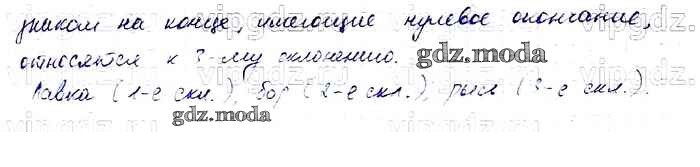 знаком на конце, имеющие нулевое окончание,
относятся к 3-му склонению.
gdz.moda
Лавка (1-е скл.), бор (2-е скл.), рысь (3-е скл.).
gdz.moda